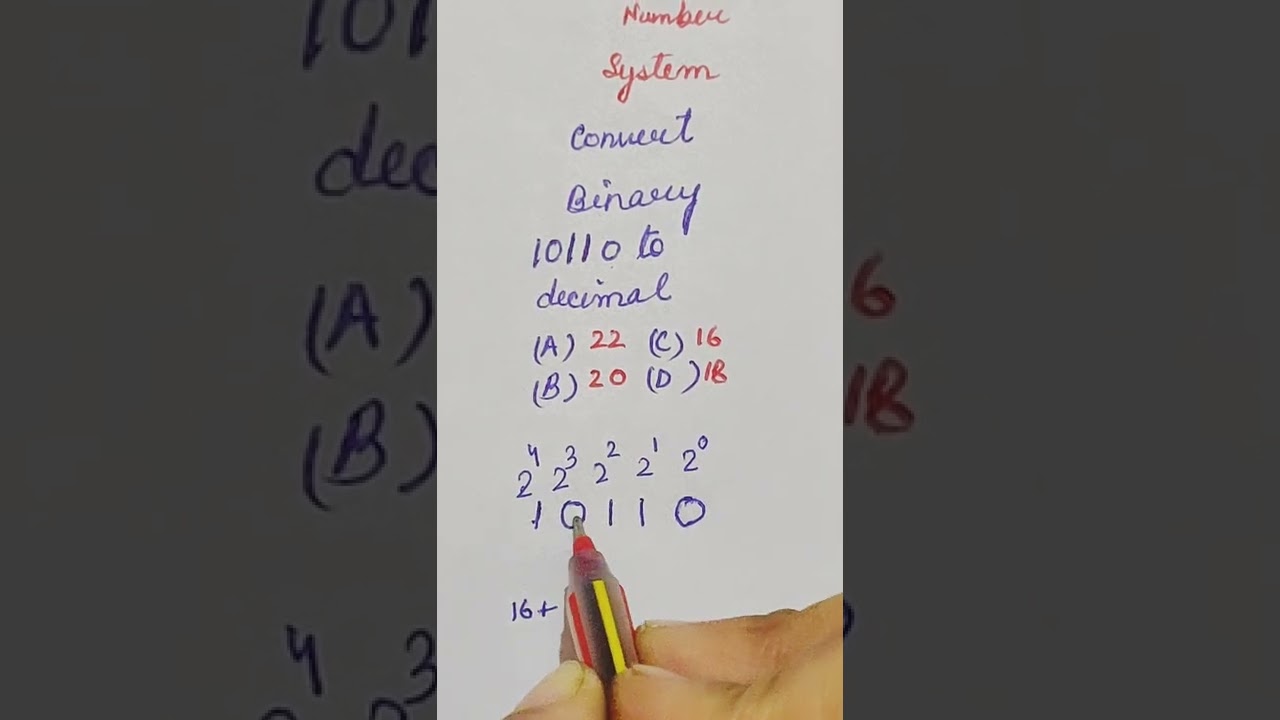 Number
System
Convert
Binary
10110 to
decimal
(A) 22 (C) 16
(B) 20 (D) 18
2⁴ 2³ 2² 2¹ 2⁰
1 0 1 1 0
16+